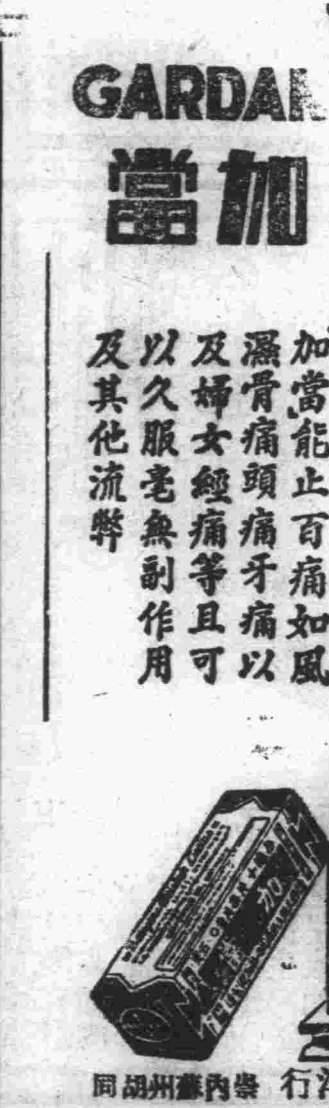 GARDAN
加當
加當能止百痛如風
濕骨痛頭痛牙痛以
及婦女經痛等且可
以久服毫無副作用
及其他流弊
加
行
崇內蘇州胡同